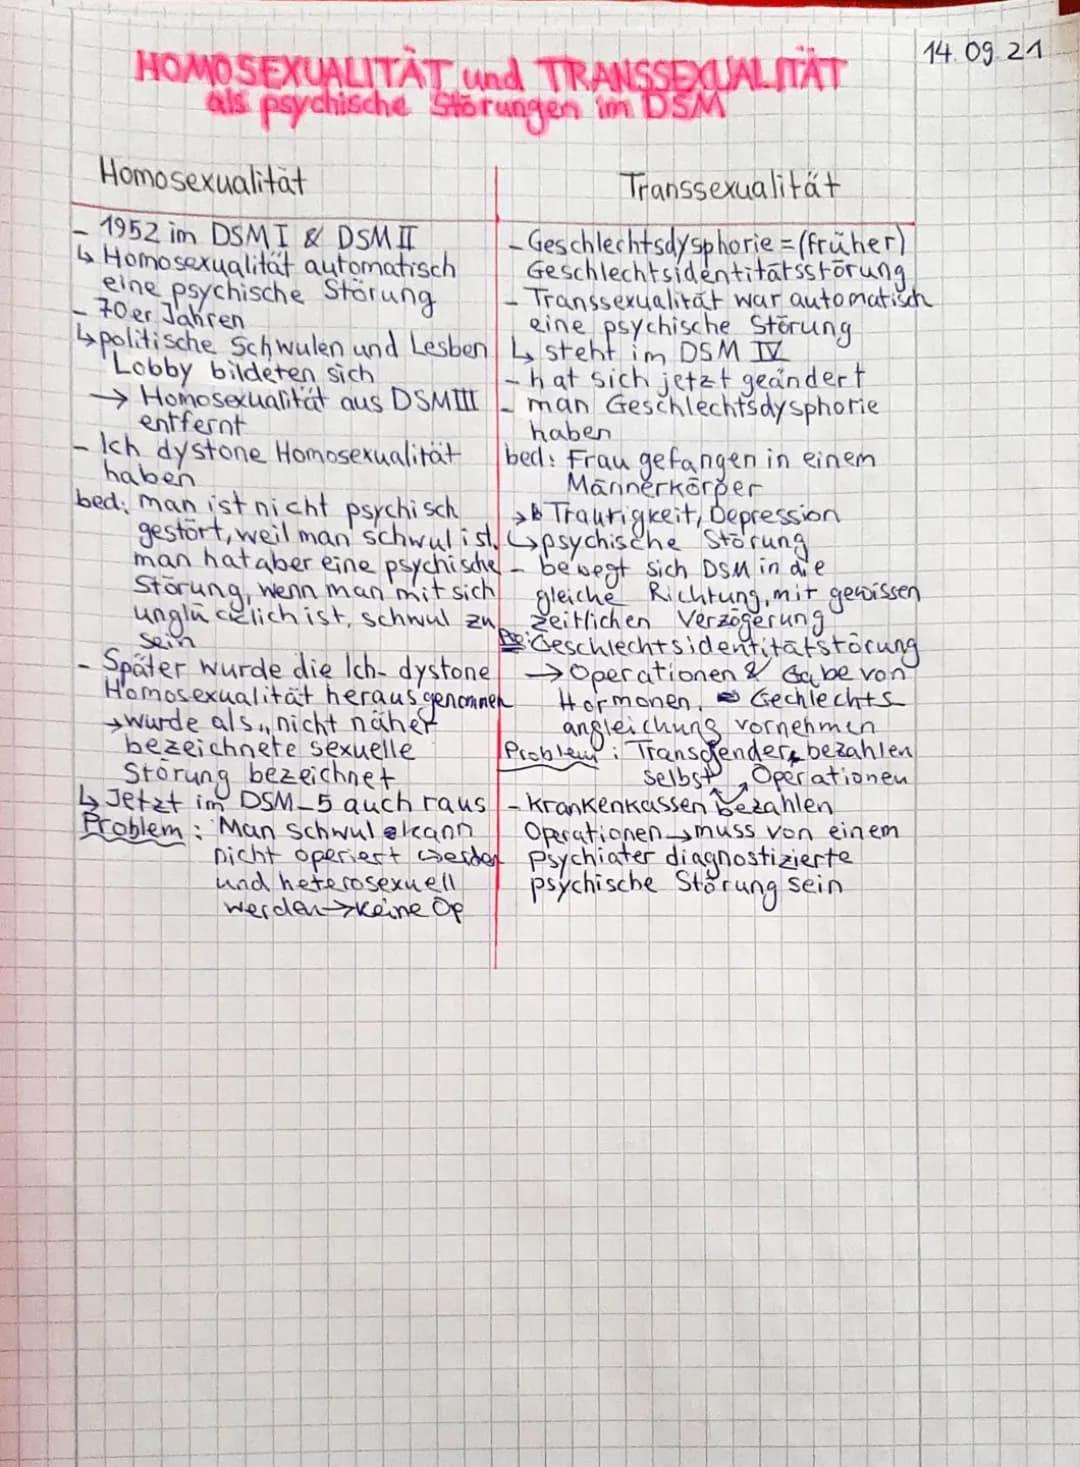 14.09.21
HOMOSEXUALITÄT und TRANSSEXUALITÄT
als psychische Störungen im DSM
Homosexualität
- 1952 im DSM I & DSM II
↳ Homosexualität automatisch
eine psychische Störung
- 70er Jahren
↳ politische Schwulen und Lesben
Lobby bildeten sich
→ Homosexualität aus DSM III
entfernt
- Ich dystone Homosexualität
haben
bed: man ist nicht psychisch
gestört, weil man schwul ist,
man hat aber eine psychische
Störung, wenn man mit sich
unglücklich ist, schwul zu
sein
- Später wurde die Ich-dystone
Homosexualität herausgenommen
→ wurde als „nicht näher
bezeichnete sexuelle
Störung bezeichnet
↳ Jetzt im DSM-5 auch raus
Problem: Man schwul kann
nicht operiert werden
und heterosexuell
werden → keine Op
Transsexualität
- Geschlechtsdysphorie = (früher)
Geschlechtsidentitätsstörung
- Transsexualität war automatisch
eine psychische Störung
↳ steht im DSM IV
- hat sich jetzt geändert
- man Geschlechtsdysphorie
haben
bed: Frau gefangen in einem
Männerkörper
→ Traurigkeit, Depression
↳ psychische Störung
- bewegt sich DSM in die
gleiche Richtung, mit gewissen
zeitlichen Verzögerung
Geschlechtsidentitätstörung
→ Operationen & Gabe von
Hormonen, Gechlechts
angleichung vornehmen
Problem: Transgender bezahlen
selbst Operationen
- Krankenkassen bezahlen
Operationen → muss von einem
Psychiater diagnostizierte
psychische Störung sein